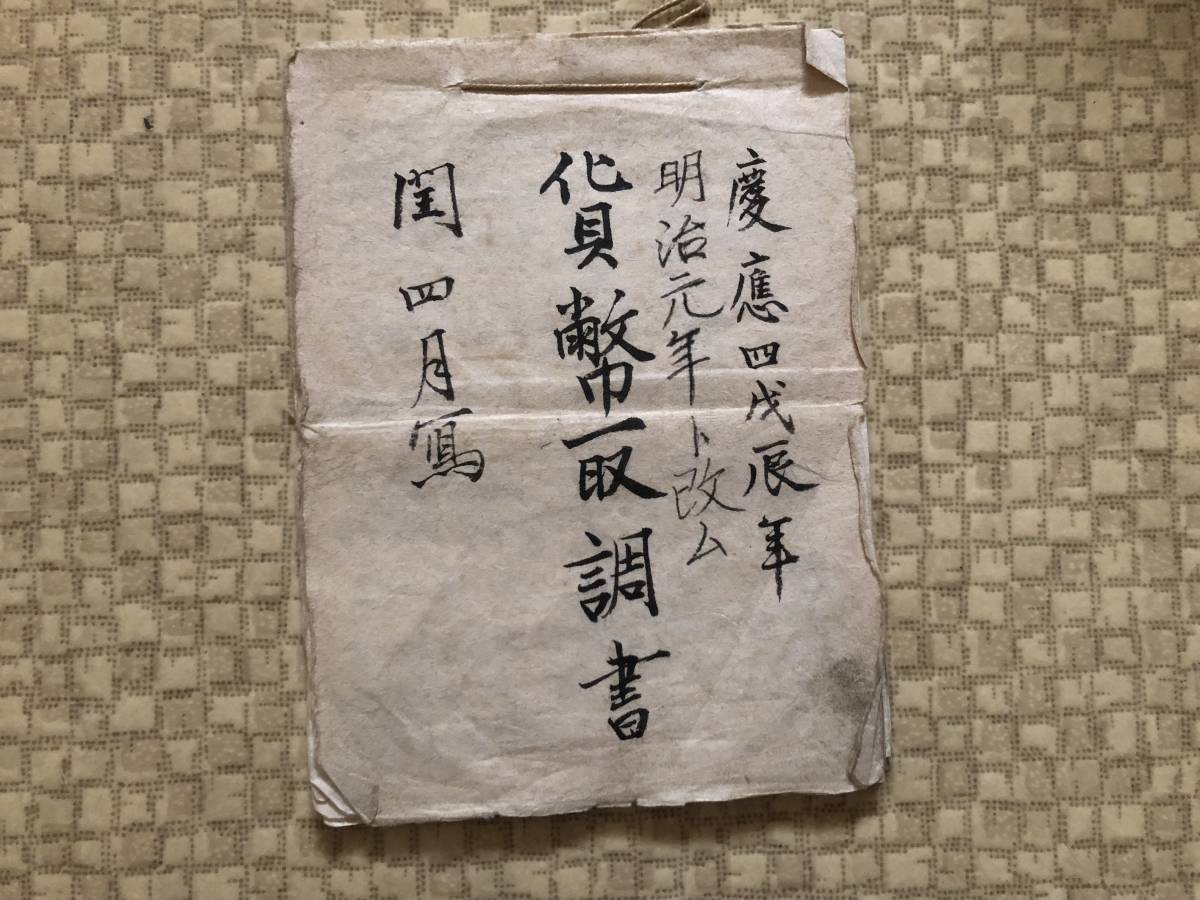 慶應四戊辰年
明治元年ト改ム
貨幣取調書
閏四月寫